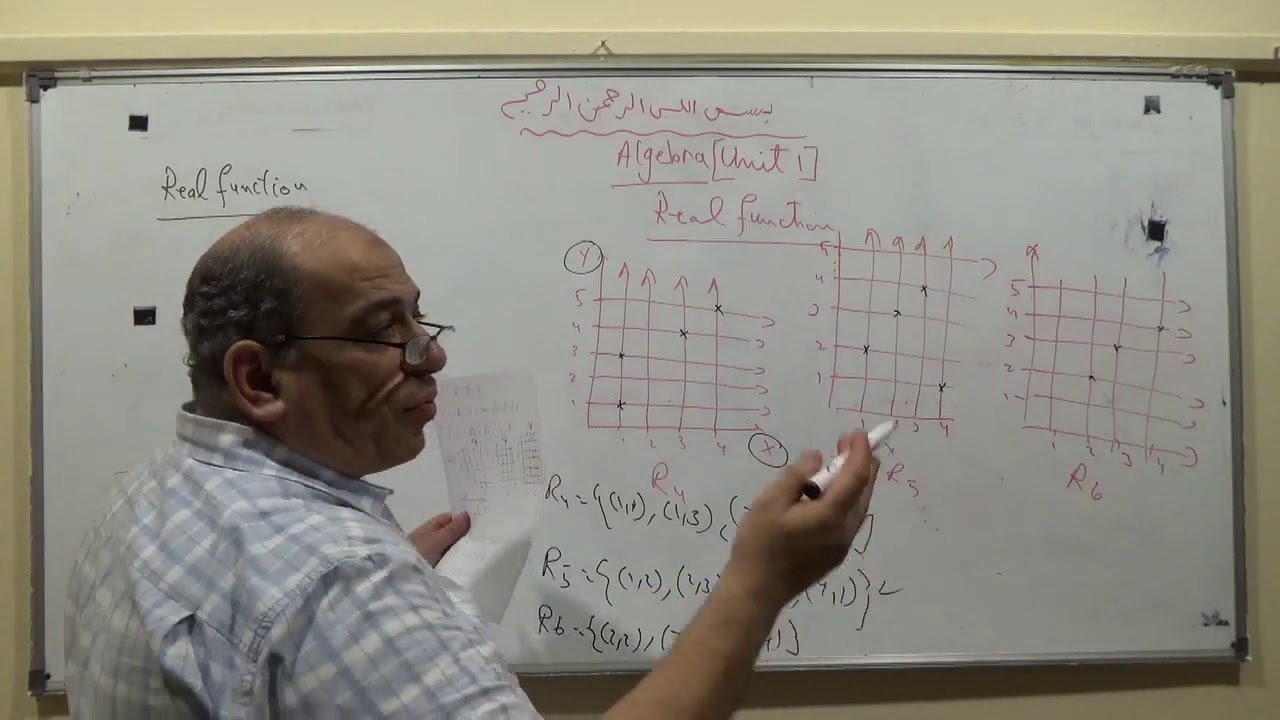 بسم الله الرحمن الرحيم
Algebra [Unit 1]
Real function
Real function
Y
5
4
3
2
1
1 2 3 4
X
R4
5
4
3
2
1
3 4
R5
5
4
3
2
1
1 2 3 4
R6
R4 = {(1,1), (1,3), (
R5 = {(1,2), (2,3 , (4,1)}
R6 = {(2,2), ( )}